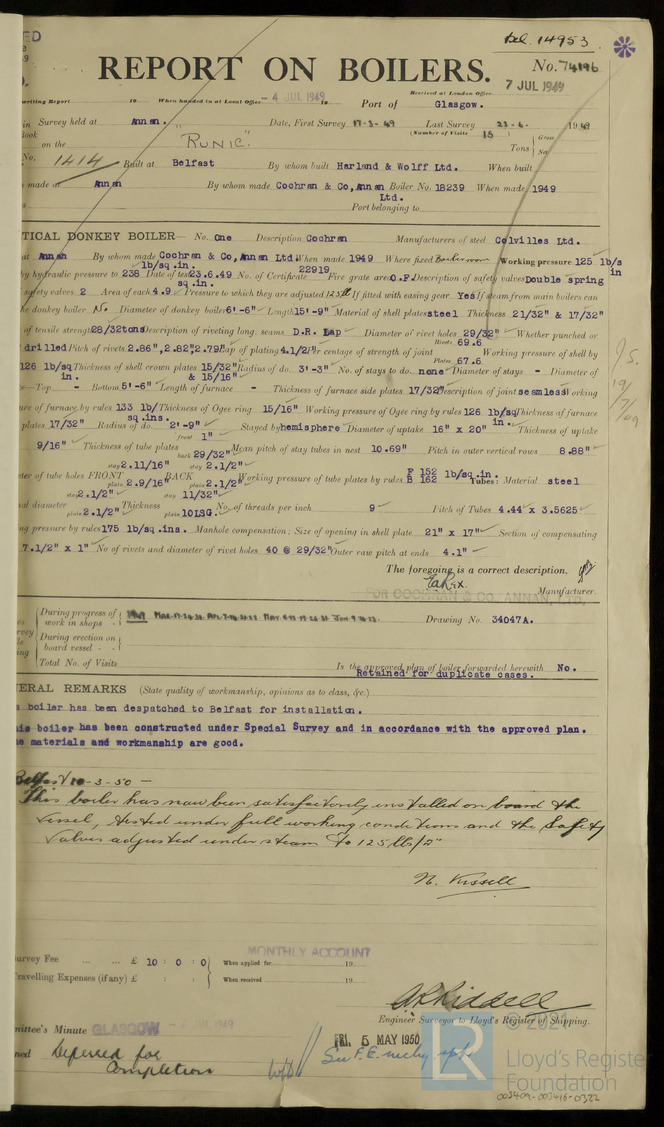 Bel. 14953
REPORT ON BOILERS.
No. 74196
7 JUL 1949
Received at London Office
writing Report 19 When handed in at Local Office - 4 JUL 1949 19 Port of Glasgow.
Survey held at Annan. Date, First Survey 17-3-49 Last Survey 23-6- 1949
(Number of Visits 15 )
on the "RUNIC" Tons Gross Net
No. 1414 Built at Belfast By whom built Harland & Wolff Ltd. When built
made at Annan By whom made Cochran & Co, Annan Ltd. Boiler No. 18239 When made 1949
Port belonging to
TICAL DONKEY BOILER— No. One Description Cochran Manufacturers of steel Colvilles Ltd.
at Annan By whom made Cochran & Co, Annan Ltd. When made 1949 Where fixed Boiler room Working pressure 125 lb/s in
by hydraulic pressure to 238 lb/sq.in. Date of test 23.6.49 No. of Certificate 22919 Fire grate area O.F. Description of safety valves Double spring
safety valves 2 Area of each 4.9 sq.in. Pressure to which they are adjusted 125 If fitted with easing gear Yes If steam from main boilers can
he donkey boiler No. Diameter of donkey boiler 6'-6" Length 15'-9" Material of shell plates steel Thickness 21/32" & 17/32"
of tensile strength 28/32 tons Description of riveting long. seams D.R. Lap Diameter of rivet holes 29/32" Whether punched or
drilled Pitch of rivets 2.86", 2.82", 2.79" Lap of plating 4.1/2" Per centage of strength of joint Rivets 69.6 Plates 67.6 Working pressure of shell by
126 lb/sq in. Thickness of shell crown plates 15/32" & 15/16" Radius of do. 3'-3" No. of stays to do. none Diameter of stays - Diameter of
Top - Bottom 5'-6" Length of furnace - Thickness of furnace side plates 17/32" Description of joint seamless Working
ure of furnace by rules 133 lb/sq.ins. Thickness of Ogee ring 15/16" Working pressure of Ogee ring by rules 126 lb/sq in. Thickness of furnace
plates 17/32" Radius of do. 2'-9" Stayed by hemisphere Diameter of uptake 16" x 20" Thickness of uptake
9/16" Thickness of tube plates front 1" back 29/32" Mean pitch of stay tubes in nest 10.69" Pitch in outer vertical rows 8.88"
ter of tube holes FRONT stay 2.11/16" plain 2.9/16" BACK stay 2.1/2" plain 2.1/2" Working pressure of tube plates by rules F 152 B 162 lb/sq.in. Tubes: Material steel
al diameter stay 2.1/2" plain 2.1/2" Thickness stay 11/32" plain 10LSG. No. of threads per inch 9 Pitch of Tubes 4.44" x 3.5625"
ng pressure by rules 175 lb/sq.ins. Manhole compensation: Size of opening in shell plate 21" x 17" Section of compensating
7.1/2" x 1" No of rivets and diameter of rivet holes 40 @ 29/32" Outer row pitch at ends 4.1"
The foregoing is a correct description,
FOR COCHRAN & CO. ANNAN, LTD.
Manufacturer.
During progress of work in shops - - Drawing No. 34047A.
During erection on board vessel - -
Total No. of Visits Is the approved plan of boiler forwarded herewith No.
Retained for duplicate cases.
ERAL REMARKS (State quality of workmanship, opinions as to class, &c.)
s boiler has been despatched to Belfast for installation.
his boiler has been constructed under Special Survey and in accordance with the approved plan.
e materials and workmanship are good.
Belfast 10-3-50 —
This boiler has now been satisfactorily installed on board the
Vessel, tested under full working conditions and the Safety
Valves adjusted under steam to 125 lb/□"
N. Kissell
MONTHLY ACCOUNT
urvey Fee ... ... £ 10 : 0 : 0 When applied for 19
ravelling Expenses (if any) £ : : When received 19
Engineer Surveyor to Lloyd's Register of Shipping.
mittee's Minute GLASGOW - JUL 1949
FRI. 5 MAY 1950
ned Deferred for
Completion
© 2021
LR
Lloyd's Register
Foundation
003409-003416-0322